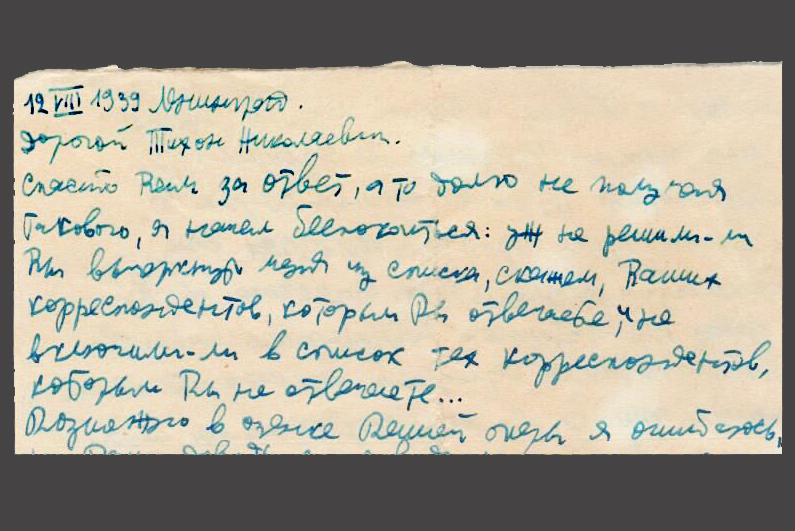 12 VIII 1939 Ленинград.
Дорогой Тихон Николаевич.
Спасибо Вам за ответ, а то долго не получая
такового, я начал беспокоиться: уж не решили-ли
Вы вычеркнуть меня из списка, скажем, Ваших
корреспондентов, которым Вы отвечаете, и не
включили-ли в список тех корреспондентов,
которым Вы не отвечаете...
Возможно в оценке Вашей оперы я ошибаюсь,